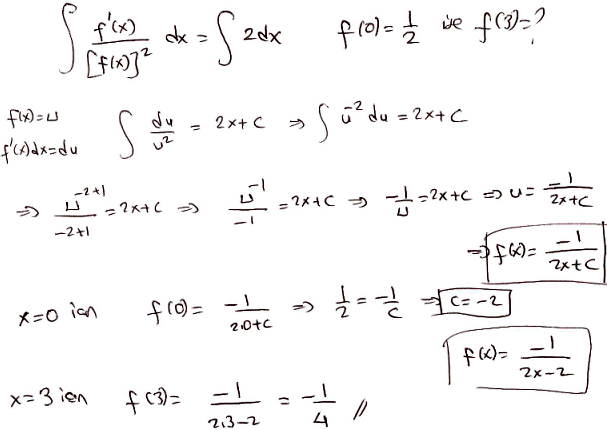 ∫ f'(x)/[f(x)]² dx = ∫ 2dx f(0) = 1/2 ise f(3)=?
f(x)=u
f'(x)dx=du
∫ du/u² = 2x+c ⇒ ∫ u⁻² du = 2x+c
⇒ u⁻²⁺¹/-2+1 = 2x+c ⇒ u⁻¹/-1 = 2x+c ⇒ -1/u = 2x+c ⇒ u = -1/2x+c
⇒ f(x) = -1/2x+c
x=0 için f(0) = -1/2.0+c ⇒ 1/2 = -1/c ⇒ c=-2
f(x) = -1/2x-2
x=3 için f(3) = -1/2.3-2 = -1/4 //